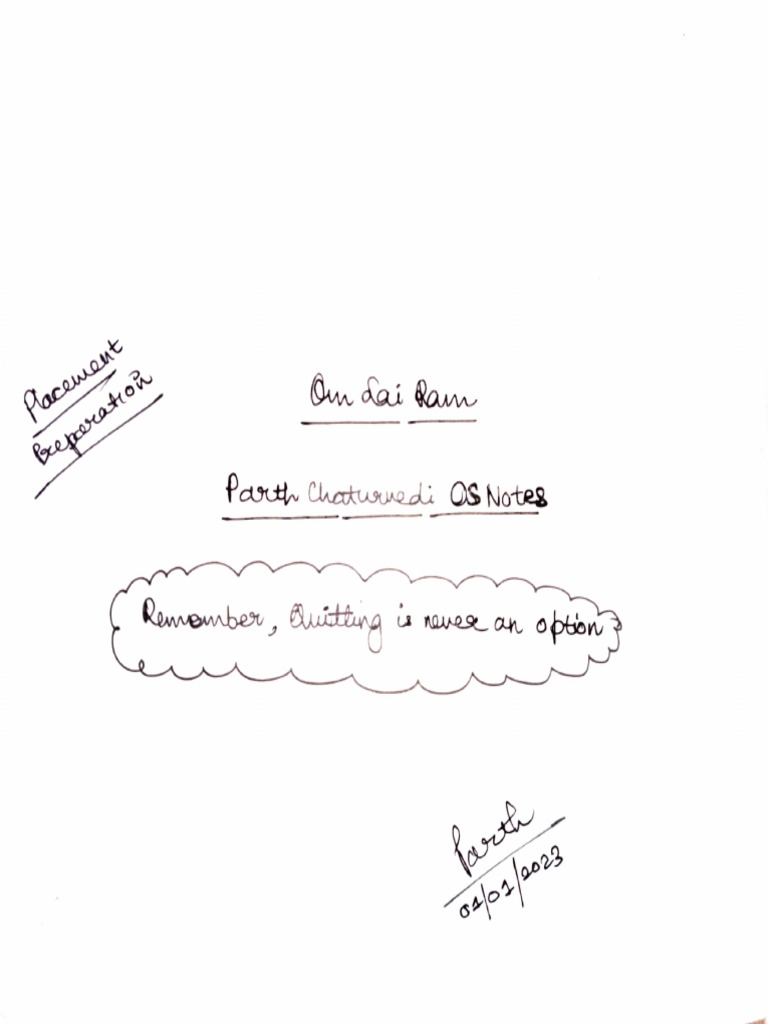 Placement
Preperation
Om Sai Ram
Parth Chaturvedi OS Notes
Remember, Quitting is never an option
Parth
01/01/2023